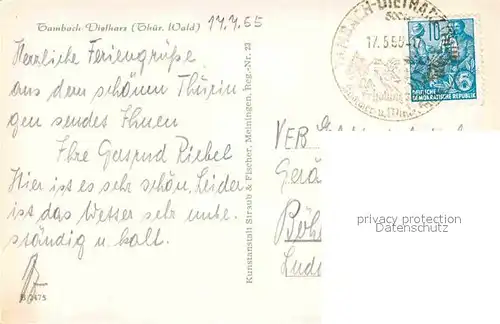 Tambach-Dietharz (Thür. Wald)
17.7.55
Herzliche Feriengrüße
aus dem schönen Thürin-
gen sendet Ihnen
Ihre Gertrud Riebel
Hier ist es sehr schön. Leider
ist das Wetter sehr unbe-
ständig u. kalt.
B 2475
Kunstanstalt Straub & Fischer, Meiningen, Reg.-Nr. 23
TAMBACH-DIETHARZ
17.5.55-17
10
DEUTSCHE
DEMOKRATISCHE REPUBLIK
VEB
Gerä
Böh
Luds
privacy protection
Datenschutz